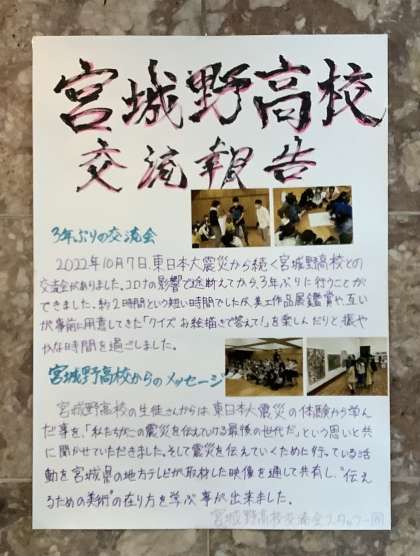 宮城野高校
交流報告
3年ぶりの交流会
2022年10月7日、東日本大震災から続く宮城野高校との
交流会がありました。コロナの影響で途断えてから、3年ぶりに行うことが
できました。約2時間という短い時間でしたが、美工作品展鑑賞や、互い
が事前に用意してきた「クイズ お絵描きで答えて!」を楽しんだりと賑や
かな時間を過ごしました。
宮城野高校からのメッセージ
宮城野高校の生徒さんからは、東日本大震災の体験から学ん
だ事を、「私たちがこの震災を伝えていける最後の世代だ」という思いと共
に聞かせていただきました。そして震災を伝えていくために行っている活
動を宮城県の地方テレビが取材した映像を通して共有し、"伝え
るための美術"の在り方を学ぶ事が出来ました。
宮城野高校交流会スタッフ一同